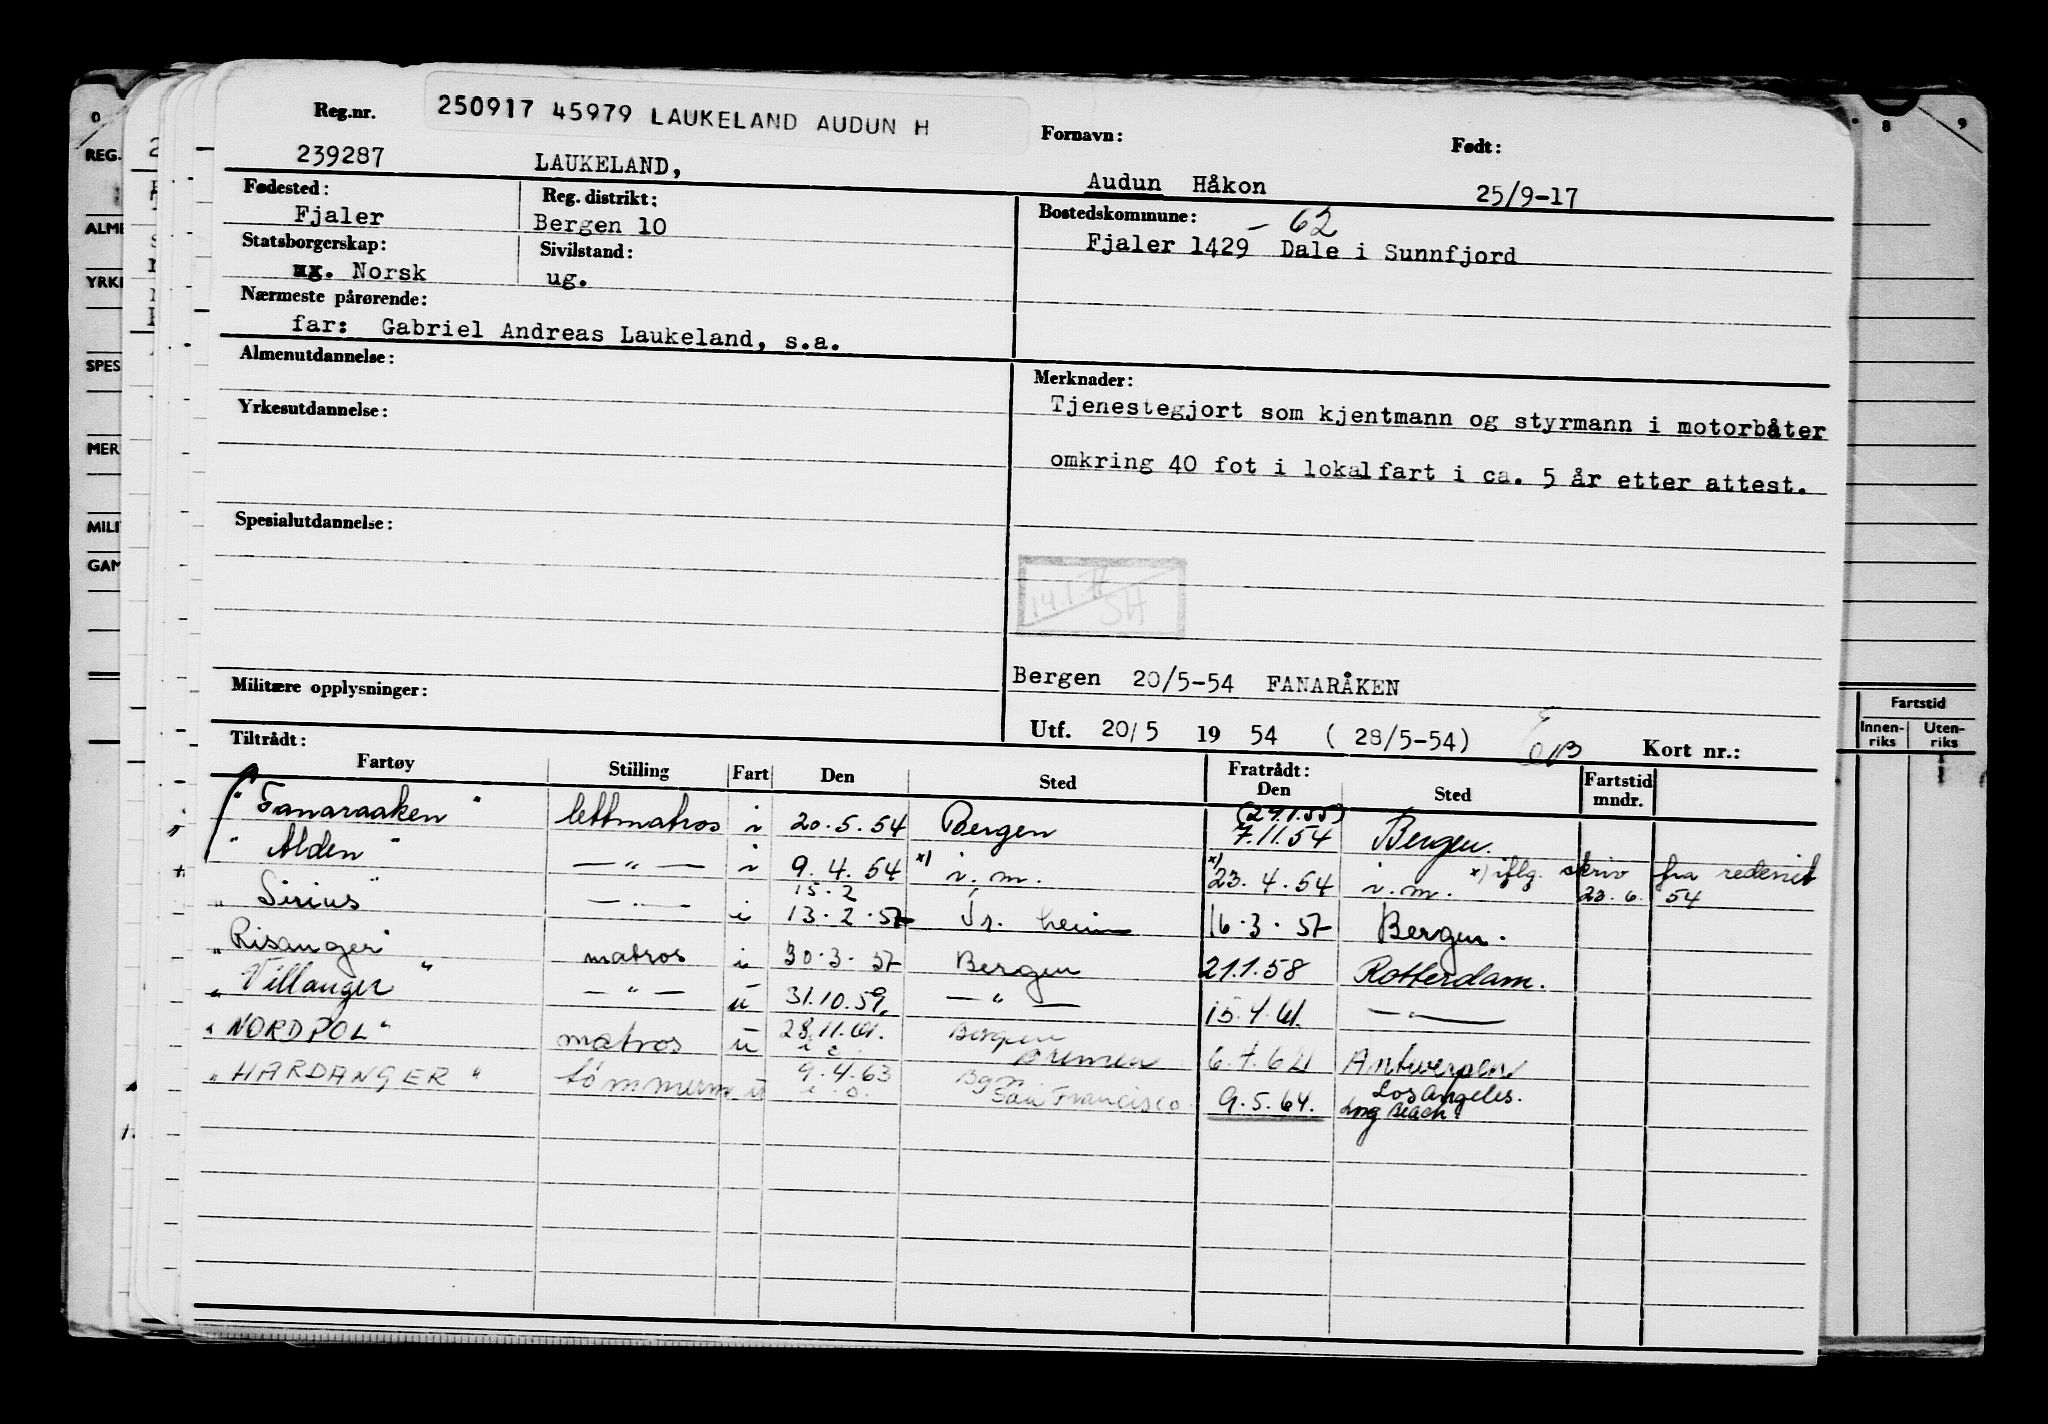 250917 45979 LAUKELAND AUDUN H
Reg.nr. Fornavn: Født:
239287 LAUKELAND, Audun Håkon 25/9-17
Fødested: Reg. distrikt: Bostedskommune: - 62
Fjaler Bergen 10 Fjaler 1429 Dale i Sunnfjord
Statsborgerskap: Sivilstand:
Norsk ug.
Nærmeste pårørende:
far: Gabriel Andreas Laukeland, s.a.
Almenutdannelse: Merknader:
Tjenestegjort som kjentmann og styrmann i motorbåter
Yrkesutdannelse:
omkring 40 fot i lokalfart i ca. 5 år etter attest.
Spesialutdannelse:
SH
Bergen 20/5-54 FANARÅKEN
Militære opplysninger:
Utf. 20/5 1954 (28/5-54) Kort nr.:
Tiltrådt: Fratrådt:
Fartøy Stilling Fart Den Sted Den Sted Fartstid mndr.
(29.1.55)
"Fanaraaken" lettmatros i 20.5.54 Bergen 7.11.54 Bergen.
"Alden" — " — i 9.4.54 x) i.m. x) 23.4.54 i.m. x) iflg. skriv fra rederiet
23.6.54
15.2
"Sirius" — " — i 13.2.57 Tr.heim 16.3.57 Bergen.
"Risanger" matros i 30.3.57 Bergen 21.1.58 Rotterdam.
"Villanger" — " — u 31.10.59. — " — 15.4.61. — " —
"NORDPOL" matros u 28.11.61. Bergen
Bremen 6.7.62 Antwerpen
"HARDANGER" tømmerm u 9.4.63 Bgn
San Francisco 9.5.64. Los Angeles.
Long Beach.
REG.
ALME
YRKE
SPES
MER
MILI
GAM
8 9
Fartstid
Innen-riks Uten-riks